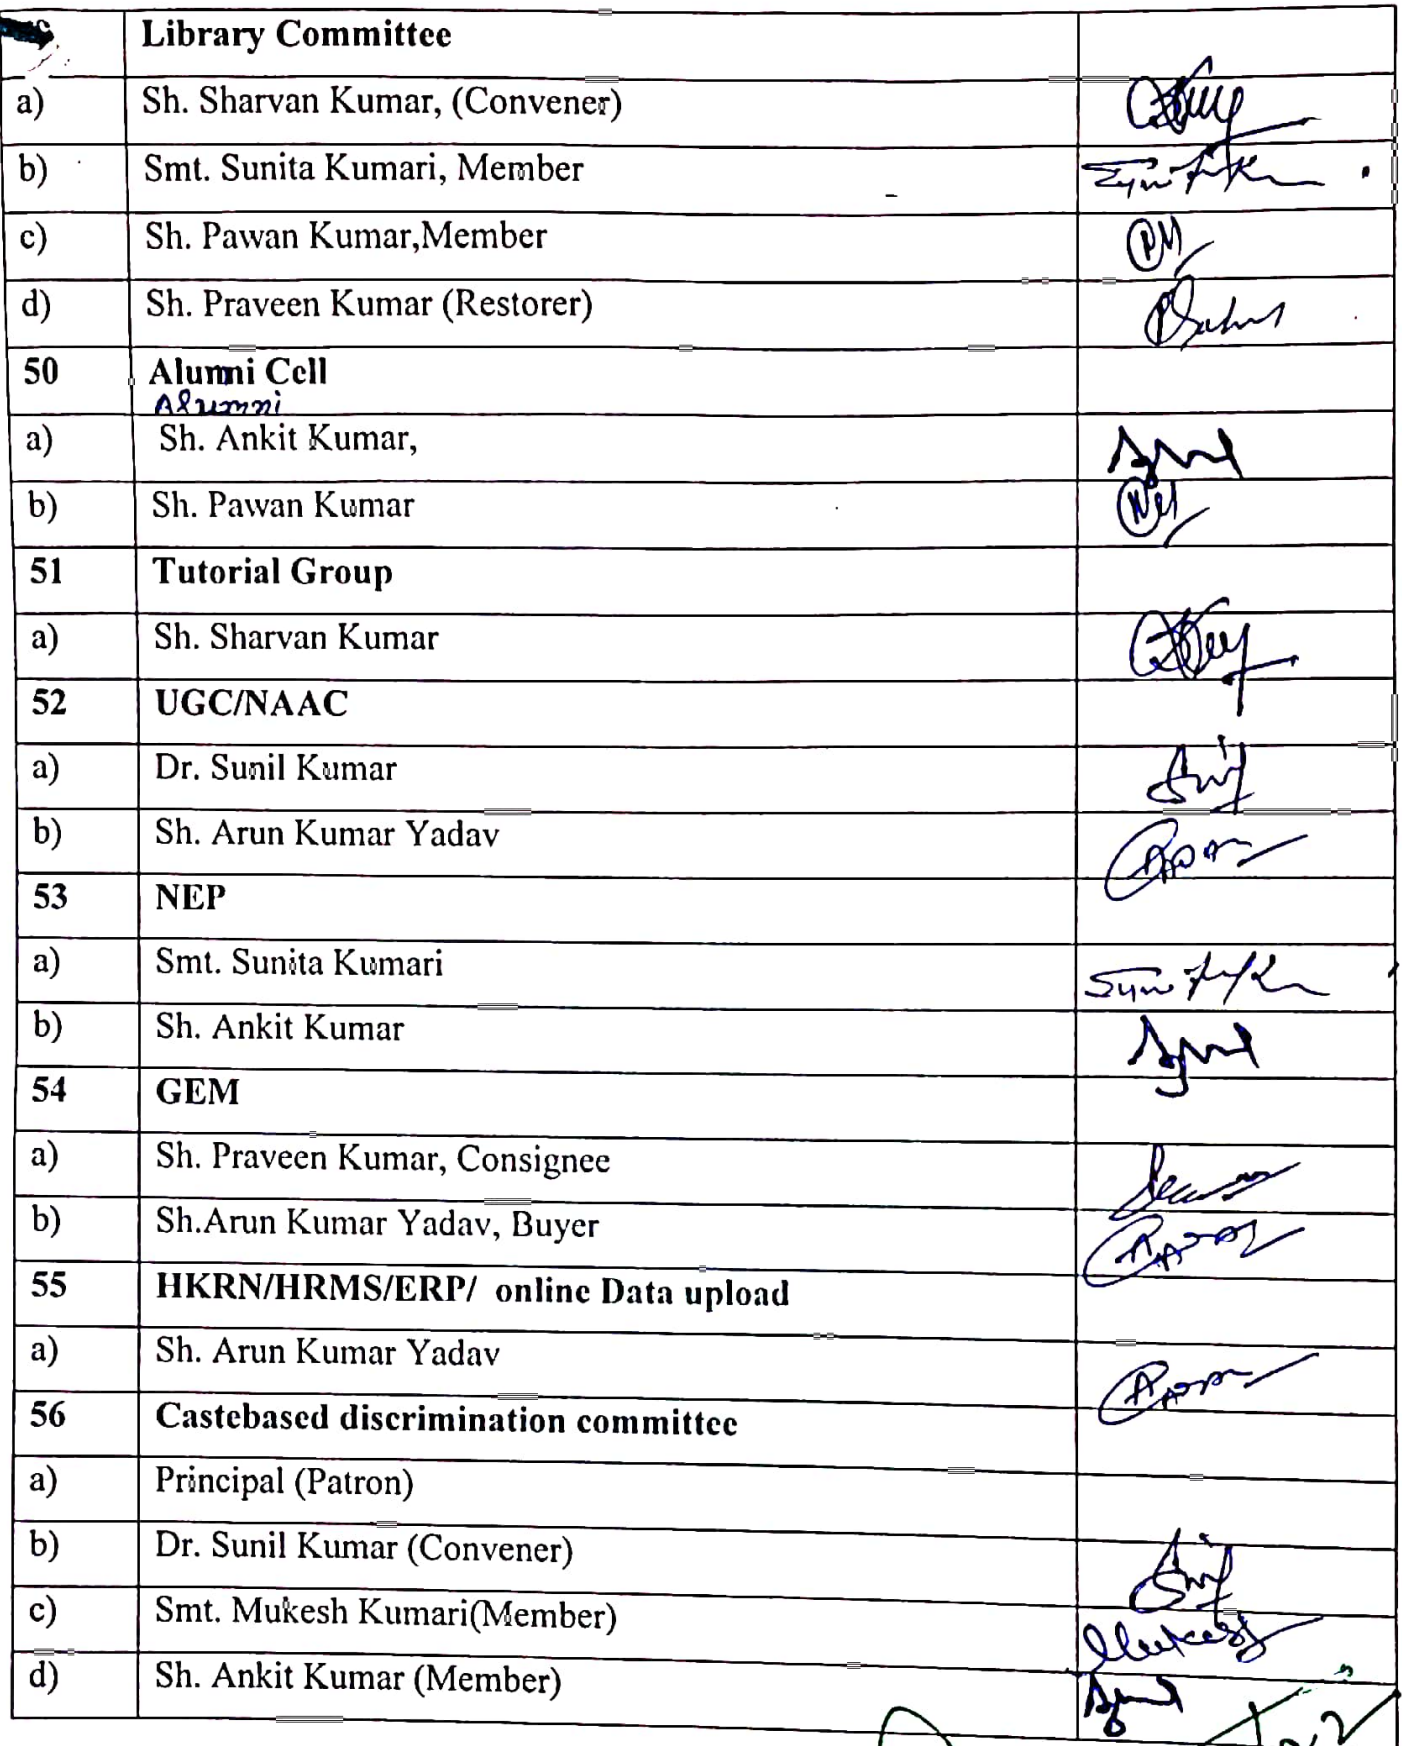 Library Committee
a) Sh. Sharvan Kumar, (Convener)
b) Smt. Sunita Kumari, Member
c) Sh. Pawan Kumar,Member
d) Sh. Praveen Kumar (Restorer)
50 Alumni Cell
Alumni
a) Sh. Ankit Kumar,
b) Sh. Pawan Kumar
51 Tutorial Group
a) Sh. Sharvan Kumar
52 UGC/NAAC
a) Dr. Sunil Kumar
b) Sh. Arun Kumar Yadav
53 NEP
a) Smt. Sunita Kumari
b) Sh. Ankit Kumar
54 GEM
a) Sh. Praveen Kumar, Consignee
b) Sh.Arun Kumar Yadav, Buyer
55 HKRN/HRMS/ERP/ online Data upload
a) Sh. Arun Kumar Yadav
56 Castebased discrimination committee
a) Principal (Patron)
b) Dr. Sunil Kumar (Convener)
c) Smt. Mukesh Kumari(Member)
d) Sh. Ankit Kumar (Member)